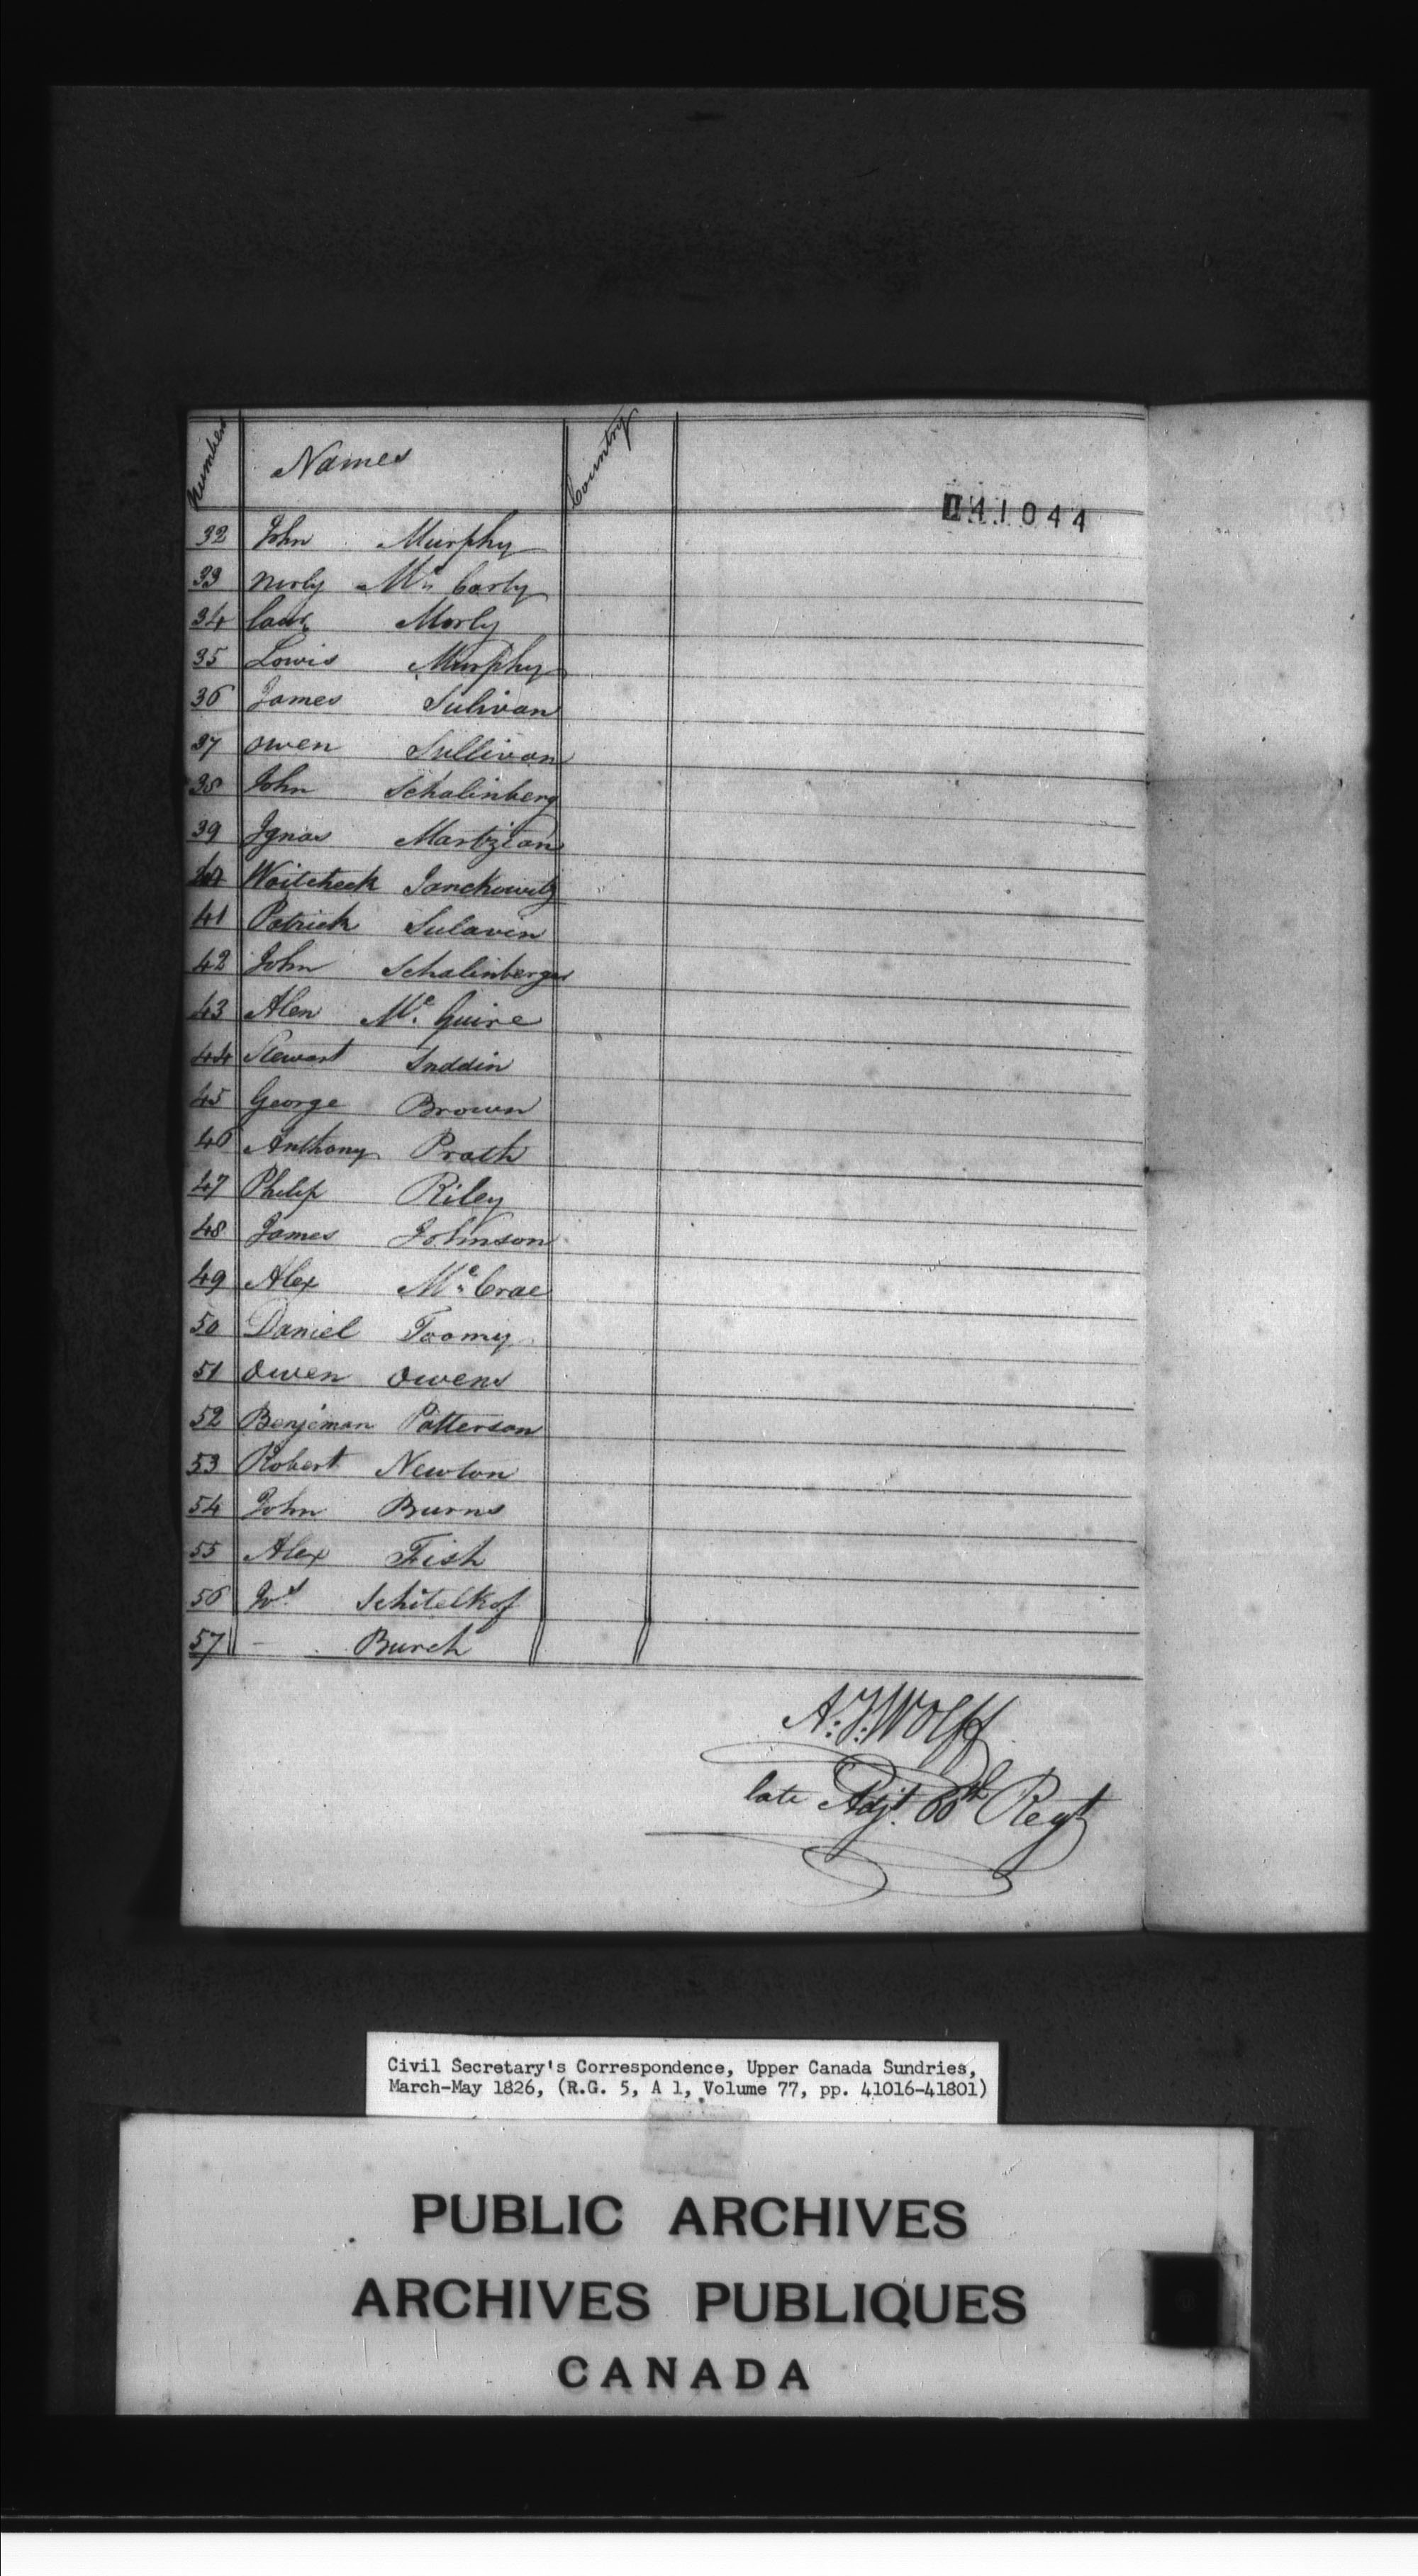 Numbers Names Country
041044
32 John Murphy
33 Merly Mc Carty
34 Morly
35 Lowis Murphy
36 James Sulivan
37 Owen Sullivan
38 John Schalinberg
39 Ignas Martzian
40 Woitcheck Janckowitz
41 Patrick Sulavin
42 John Schalinberger
43 Alen Mc Guire
44 Stewart
45 George Brown
46 Anthony Prath
47 Philip Riley
48 James Johnson
49 Alex Mc Crae
50 Daniel Toomy
51 Owen Owens
52 Benjeman Patterson
53 Robert Newton
54 John Burns
55 Alex Fish
56 Schitelkof
57 — Burch
A: J: Wolff
late Adjt. 60th Regt
Civil Secretary's Correspondence, Upper Canada Sundries,
March-May 1826, (R.G. 5, A 1, Volume 77, pp. 41016-41801)
PUBLIC ARCHIVES
ARCHIVES PUBLIQUES
CANADA